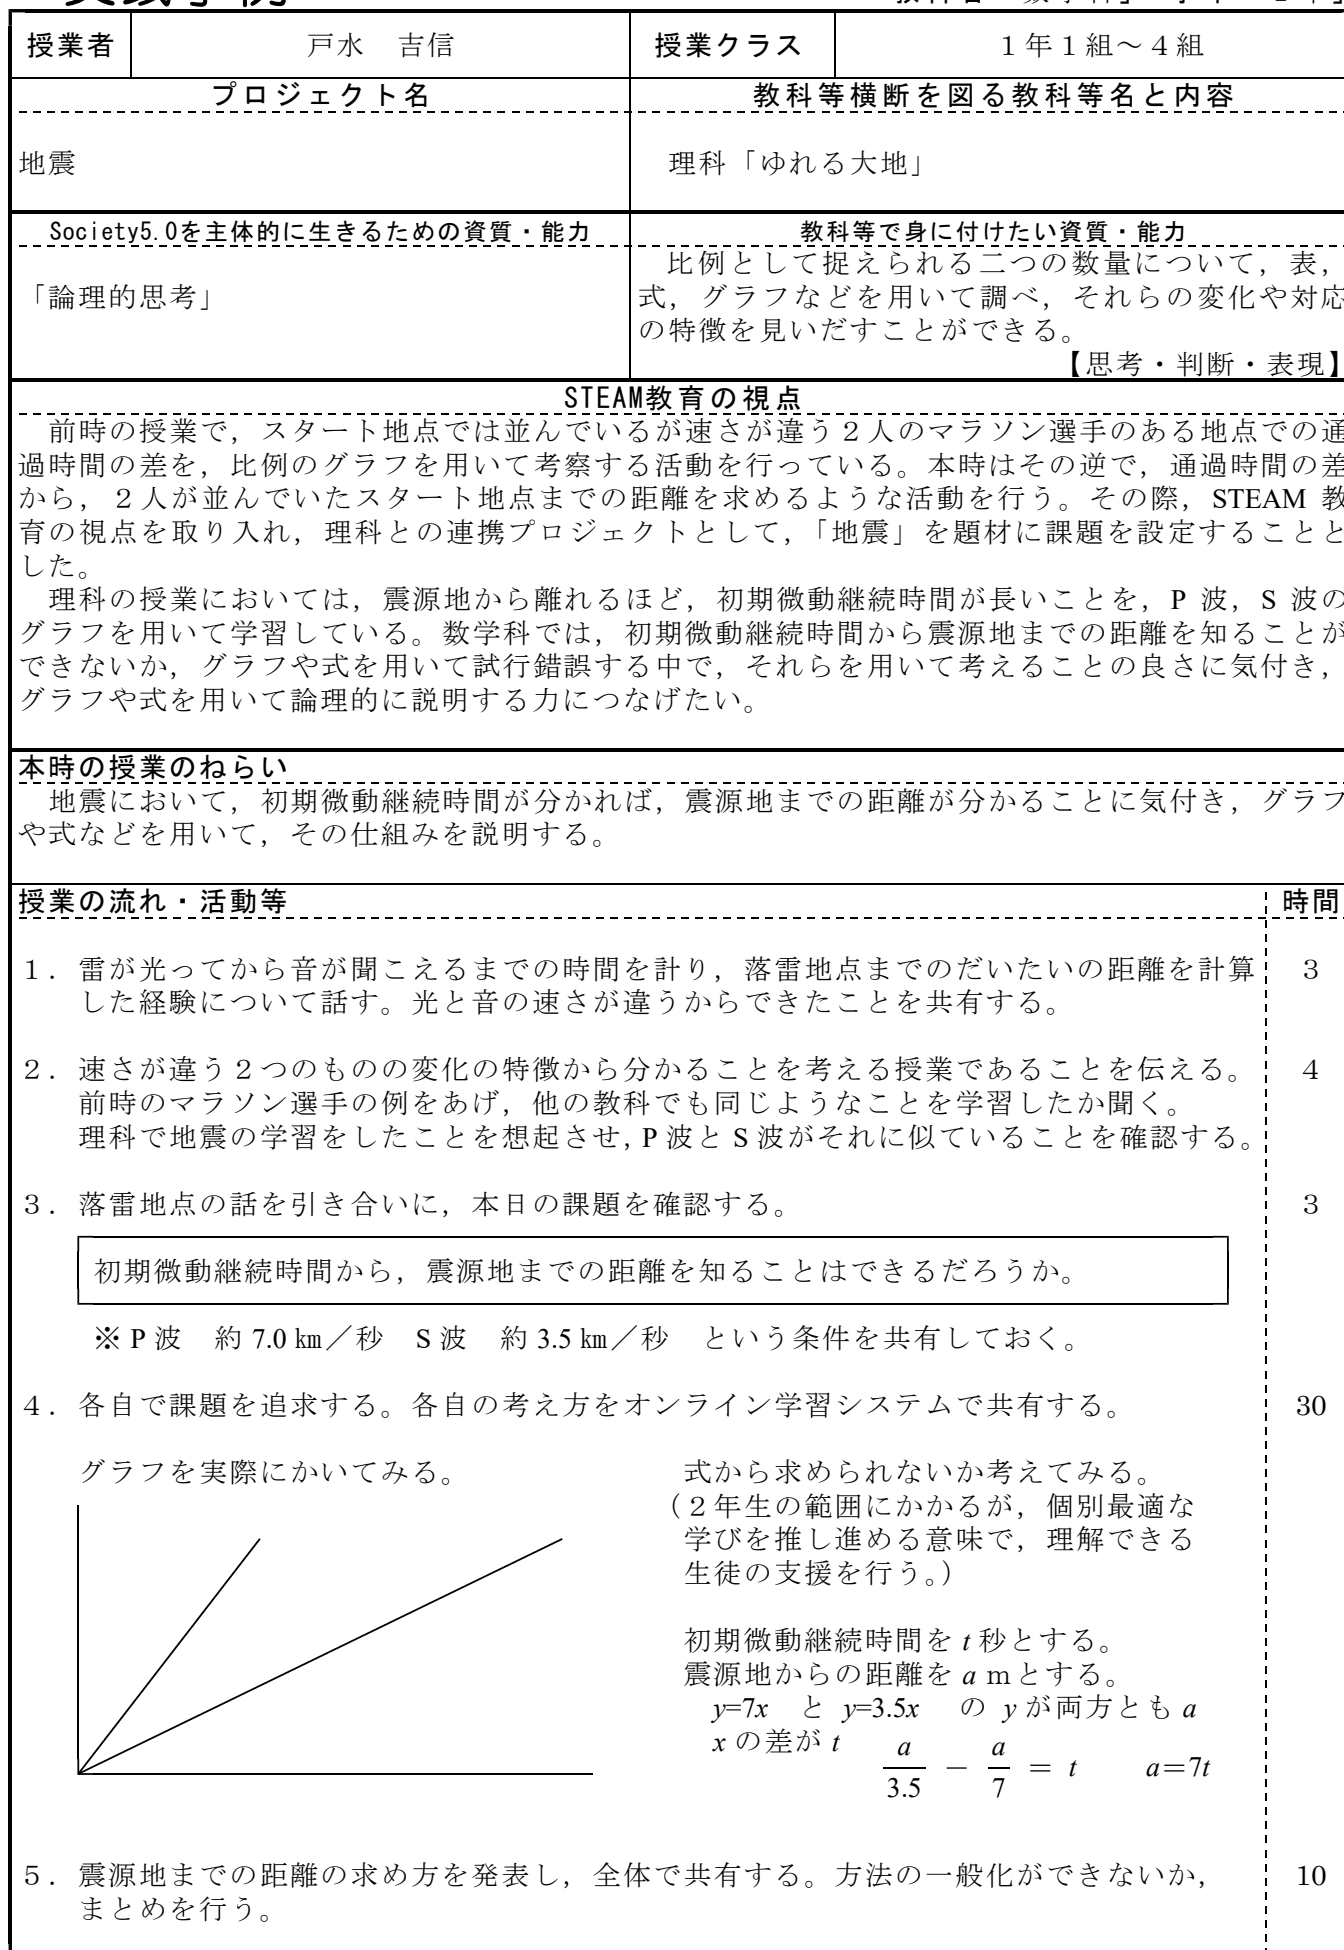 授業者 戸水 吉信 授業クラス 1年1組～4組
プロジェクト名 教科等横断を図る教科等名と内容
地震 理科「ゆれる大地」
Society5.0を主体的に生きるための資質・能力 教科等で身に付けたい資質・能力
「論理的思考」
比例として捉えられる二つの数量について，表，
式，グラフなどを用いて調べ，それらの変化や対応
の特徴を見いだすことができる。
【思考・判断・表現】
STEAM教育の視点
前時の授業で，スタート地点では並んでいるが速さが違う２人のマラソン選手のある地点での通
過時間の差を，比例のグラフを用いて考察する活動を行っている。本時はその逆で，通過時間の差
から，２人が並んでいたスタート地点までの距離を求めるような活動を行う。その際，STEAM 教
育の視点を取り入れ，理科との連携プロジェクトとして，「地震」を題材に課題を設定することと
した。
理科の授業においては，震源地から離れるほど，初期微動継続時間が長いことを，P 波，S 波の
グラフを用いて学習している。数学科では，初期微動継続時間から震源地までの距離を知ることが
できないか，グラフや式を用いて試行錯誤する中で，それらを用いて考えることの良さに気付き，
グラフや式を用いて論理的に説明する力につなげたい。
本時の授業のねらい
地震において，初期微動継続時間が分かれば，震源地までの距離が分かることに気付き，グラフ
や式などを用いて，その仕組みを説明する。
授業の流れ・活動等 時間
１．雷が光ってから音が聞こえるまでの時間を計り，落雷地点までのだいたいの距離を計算 3
した経験について話す。光と音の速さが違うからできたことを共有する。
２．速さが違う２つのものの変化の特徴から分かることを考える授業であることを伝える。 4
前時のマラソン選手の例をあげ，他の教科でも同じようなことを学習したか聞く。
理科で地震の学習をしたことを想起させ，P 波と S 波がそれに似ていることを確認する。
３．落雷地点の話を引き合いに，本日の課題を確認する。 3
初期微動継続時間から，震源地までの距離を知ることはできるだろうか。
※ P 波 約 7.0 ㎞／秒 S 波 約 3.5 ㎞／秒 という条件を共有しておく。
４．各自で課題を追求する。各自の考え方をオンライン学習システムで共有する。 30
グラフを実際にかいてみる。
式から求められないか考えてみる。
（２年生の範囲にかかるが，個別最適な
学びを推し進める意味で，理解できる
生徒の支援を行う。）
初期微動継続時間を t 秒とする。
震源地からの距離を a ｍとする。
y=7x と y=3.5x の y が両方とも a
x の差が t a/3.5 － a/7 ＝ t a＝7t
５．震源地までの距離の求め方を発表し，全体で共有する。方法の一般化ができないか， 10
まとめを行う。